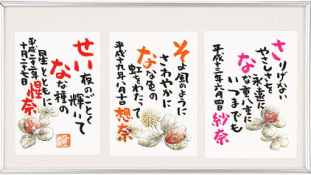 さりげない
やさしさを
永遠に
なな重八重に
いつまでも
平成十三年六月四日 紗奈
そよ風のように
さわやかに
なな色の
虹をわたって
平成十九年八月 想奈
せい夜のごとく
輝いて
なな種の
星とともに
平成二十二年
十月二十七日 惺奈